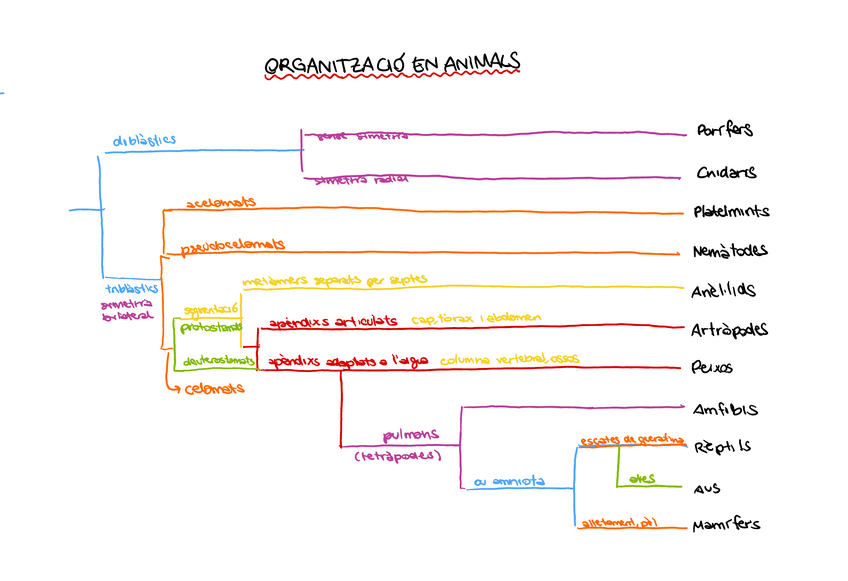 ORGANITZACIÓ EN ANIMALS
diblàstics
sense simetria
Porífers
simetria radial
Cnidaris
acelomats
Platelmints
pseudocelomats
Nemàtodes
triblàstics
simetria
bilateral
metàmers separats per septes
Anèl·lids
segmentació
protostomats
apèndixs articulats cap, tòrax i abdomen
Artròpodes
deuterostomats
apèndixs adaptats a l'aigua columna vertebral, ossos
Peixos
celomats
Amfibis
pulmons
(tetràpodes)
escates de queratina
Rèptils
ou amniota
ales
Aus
alletament, pèl
Mamífers